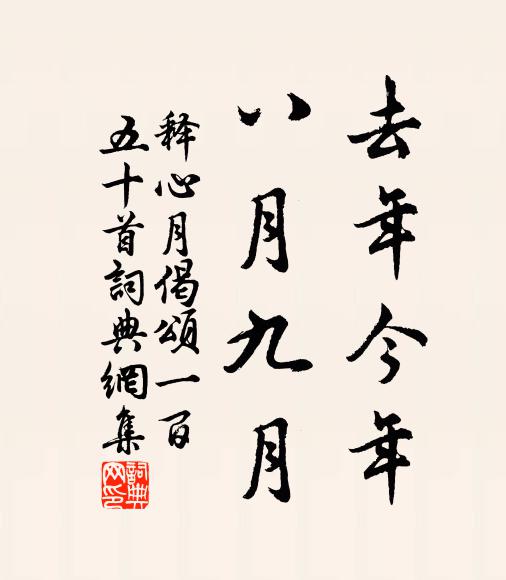 去年今年
八月九月
释心月偈颂一百
五十首詞典網集
詞典
网印